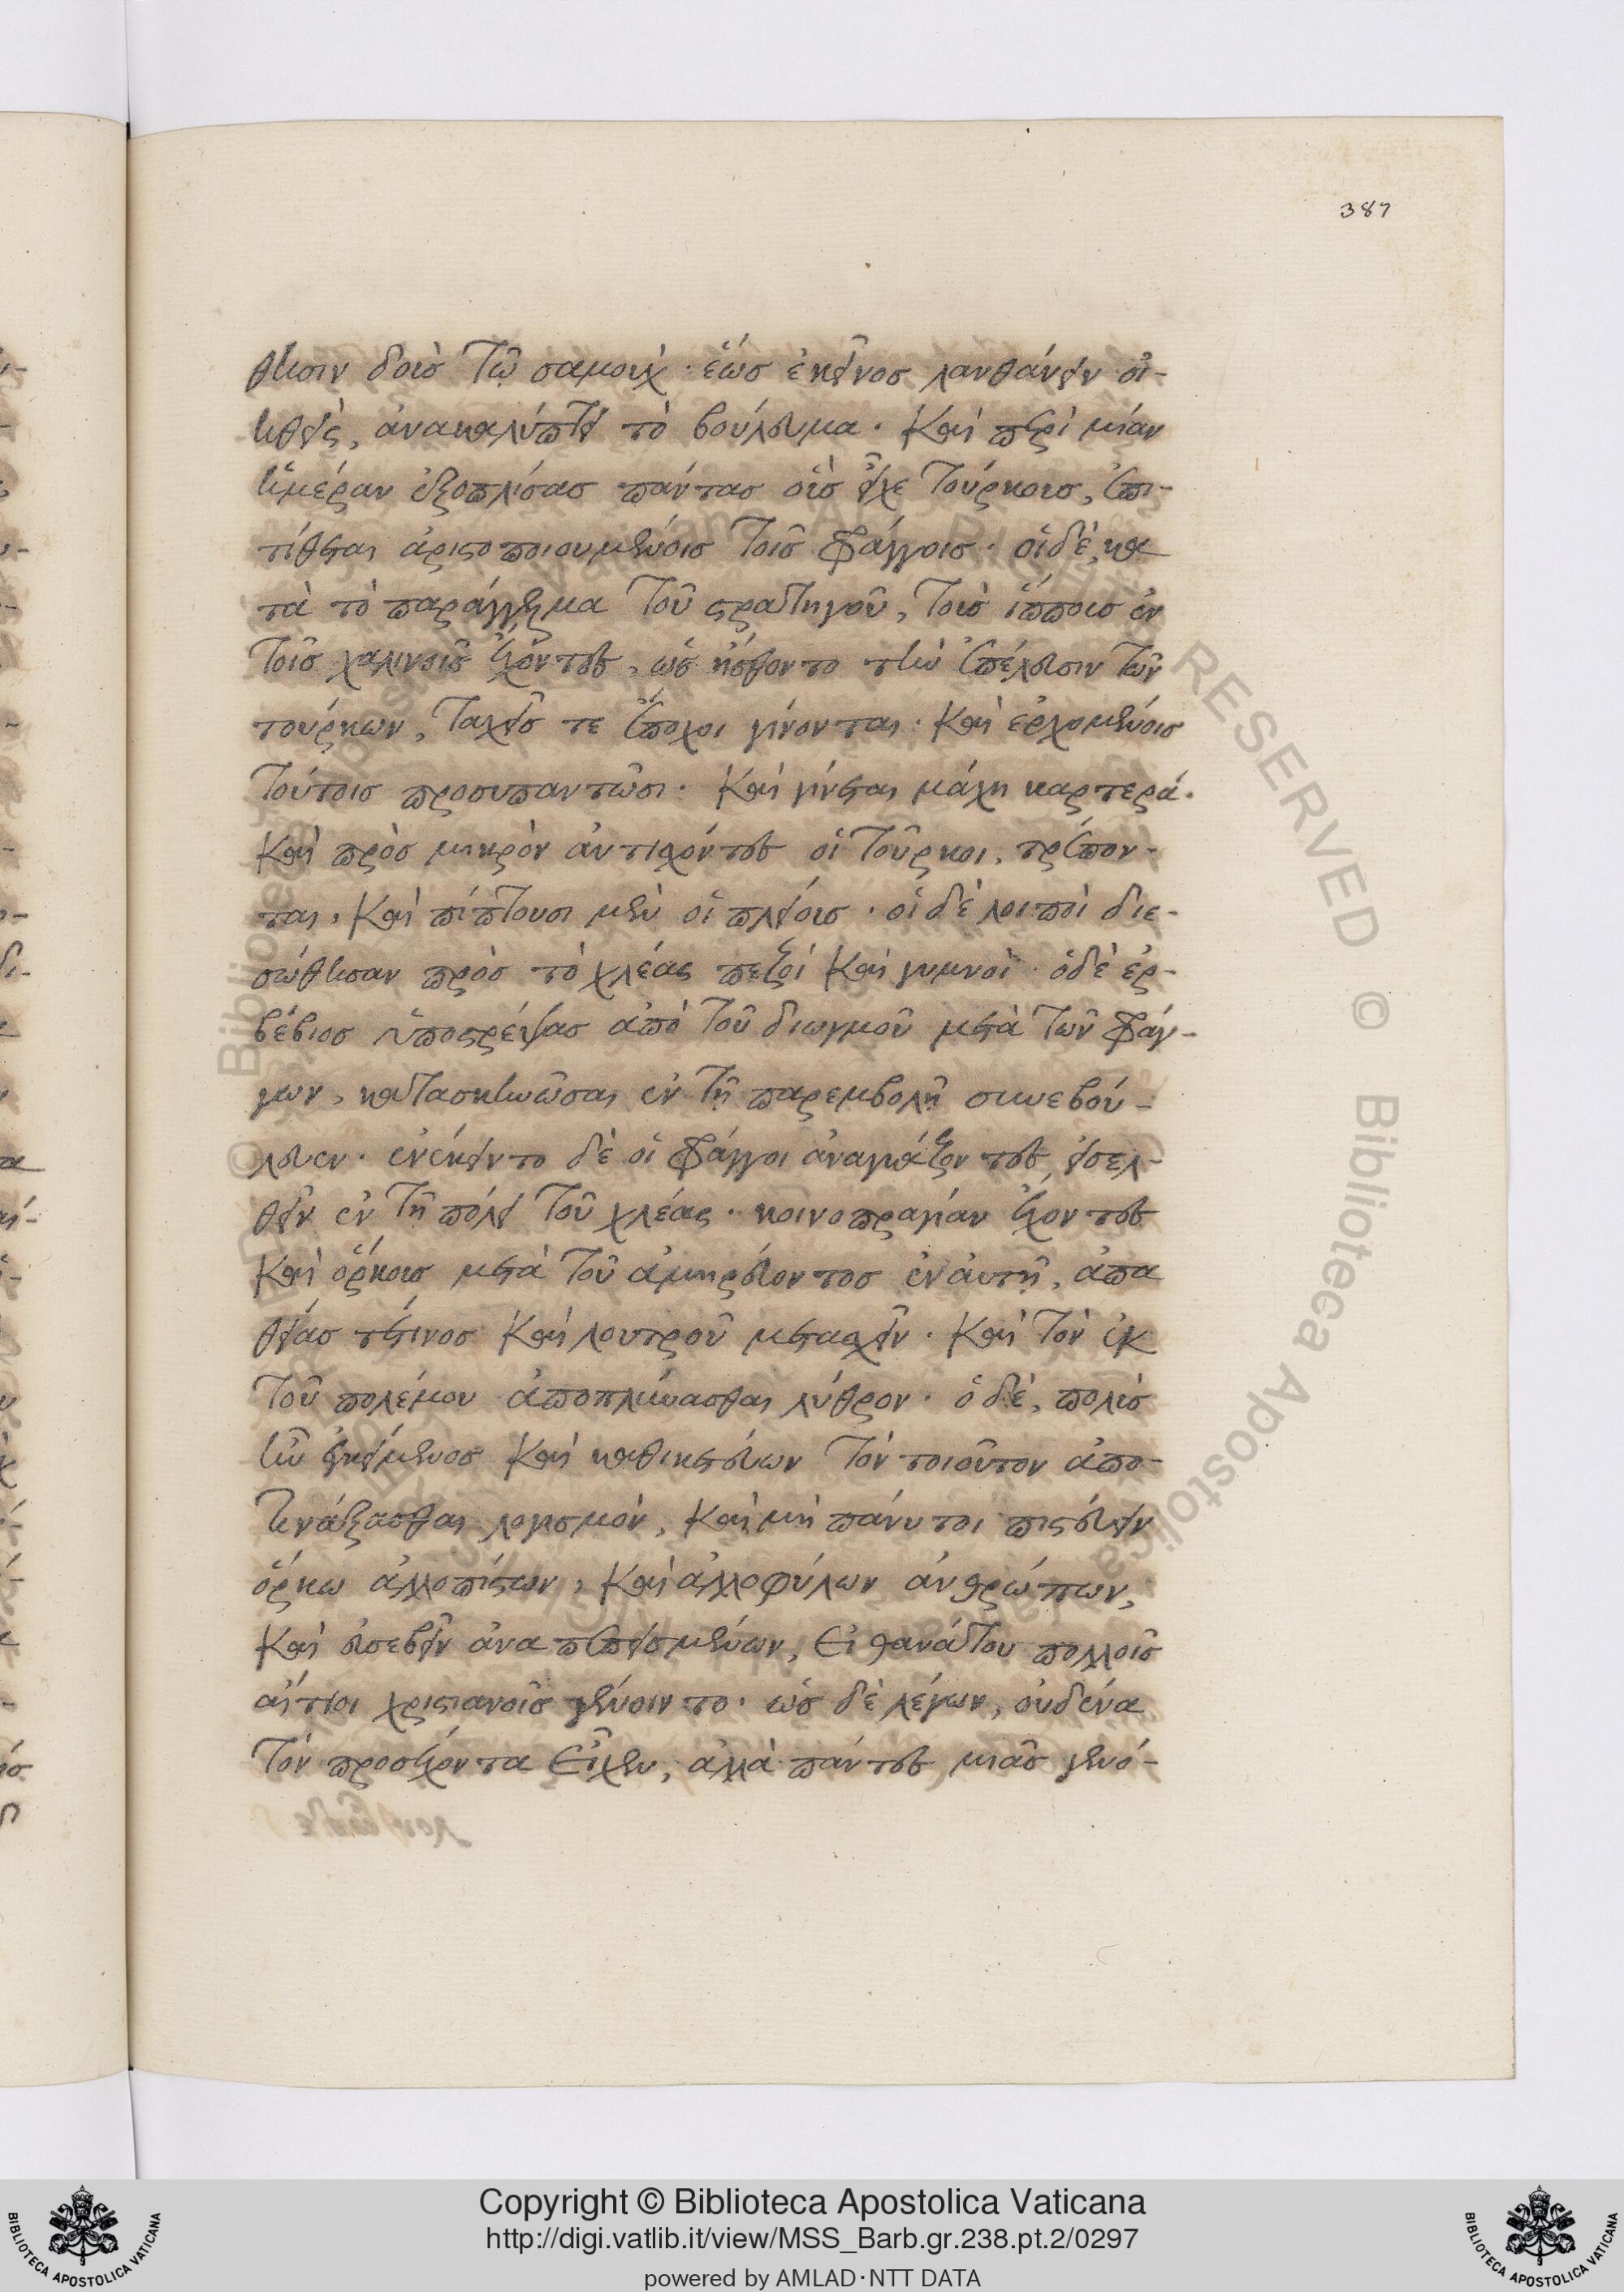 387
θησιν δοὺσ τῶ σαμοὺχ · ἕωσ ἐκεῖνοσ λανθάνειν οἰ-
ηθεὶς, ἀνακαλύπτει τὸ βούλευμα · καὶ περὶ μίαν
ἡμέραν ἐξοπλίσασ πάντασ οὓσ εἶχε τούρκουσ, ἐπι-
τίθεται ἀριστοποιουμένοισ τοῖσ φράγγοισ · οἱ δὲ, κα
τὰ τὸ παράγγελμα τοῦ στρατηγοῦ, τοὺσ ἵππουσ ἐν
τοῖσ χαλινοῖσ ἔχοντεσ, ὡσ ἤσθοντο τὴν ἐπέλευσιν τῶν
τούρκων, ταχεῖσ τε ἔποχοι γίνονται · καὶ ἐρχομένοισ
τούτοισ προσυπαντῶσι · καὶ γίνεται μάχη καρτερά ·
καὶ πρὸσ μικρὸν ἀντισχόντεσ οἱ τοῦρκοι, τρέπον-
ται, καὶ πίπτουσι μὲν οἱ πλείουσ · οἱ δὲ λοιποὶ διε-
σώθησαν πρὸσ τὸ χλέατ πεζοί καὶ γυμνοὶ · ὁ δὲ ἑρ-
βέβιοσ ὑποστρέψασ ἀπὸ τοῦ διωγμοῦ μετὰ τῶν φράγ-
γων, κατασκηνῶσαι ἐν τῆ παρεμβολῆ συνεβού-
λευεν · ἐνέκειντο δὲ οἱ φράγγοι ἀναγκάζοντεσ εἰσελ-
θεῖν ἐν τῆ πόλει τοῦ χλέατ · κοινοπραγίαν ἔχοντεσ
καὶ ὅρκουσ μετὰ τοῦ ἀμηρεύοντοσ ἐν αὐτῆ, ἀπα
θείασ τέ τινοσ καὶ λουτροῦ μετασχεῖν · καὶ τὸν ἐκ
τοῦ πολέμου ἀποπλύνασθαι λύθρον · ὁ δὲ, πολὺσ
ἦν ἐγκείμενοσ καὶ καθικετεύων τὸν τοιοῦτον ἀπο-
τινάξασθαι λογισμὸν, καὶ μὴ πάνυ τοι πιστεύειν
ὅρκω ἀλλοπίστων, καὶ ἀλλοφύλων ἀνθρώπων,
καὶ εὐσεβεῖν ἀναπεπεισμένων, εἰ θανάτου πολλοῖσ
αἴτιοι χριστιανοῖσ γένοιντο · ὡσ δὲ λέγων, οὐδένα
τὸν προσέχοντα εἶχεν, ἀλλὰ πάντεσ μιᾶσ γενό-
Copyright © Biblioteca Apostolica Vaticana
http://digi.vatlib.it/view/MSS_Barb.gr.238.pt.2/0297
powered by AMLAD·NTT DATA